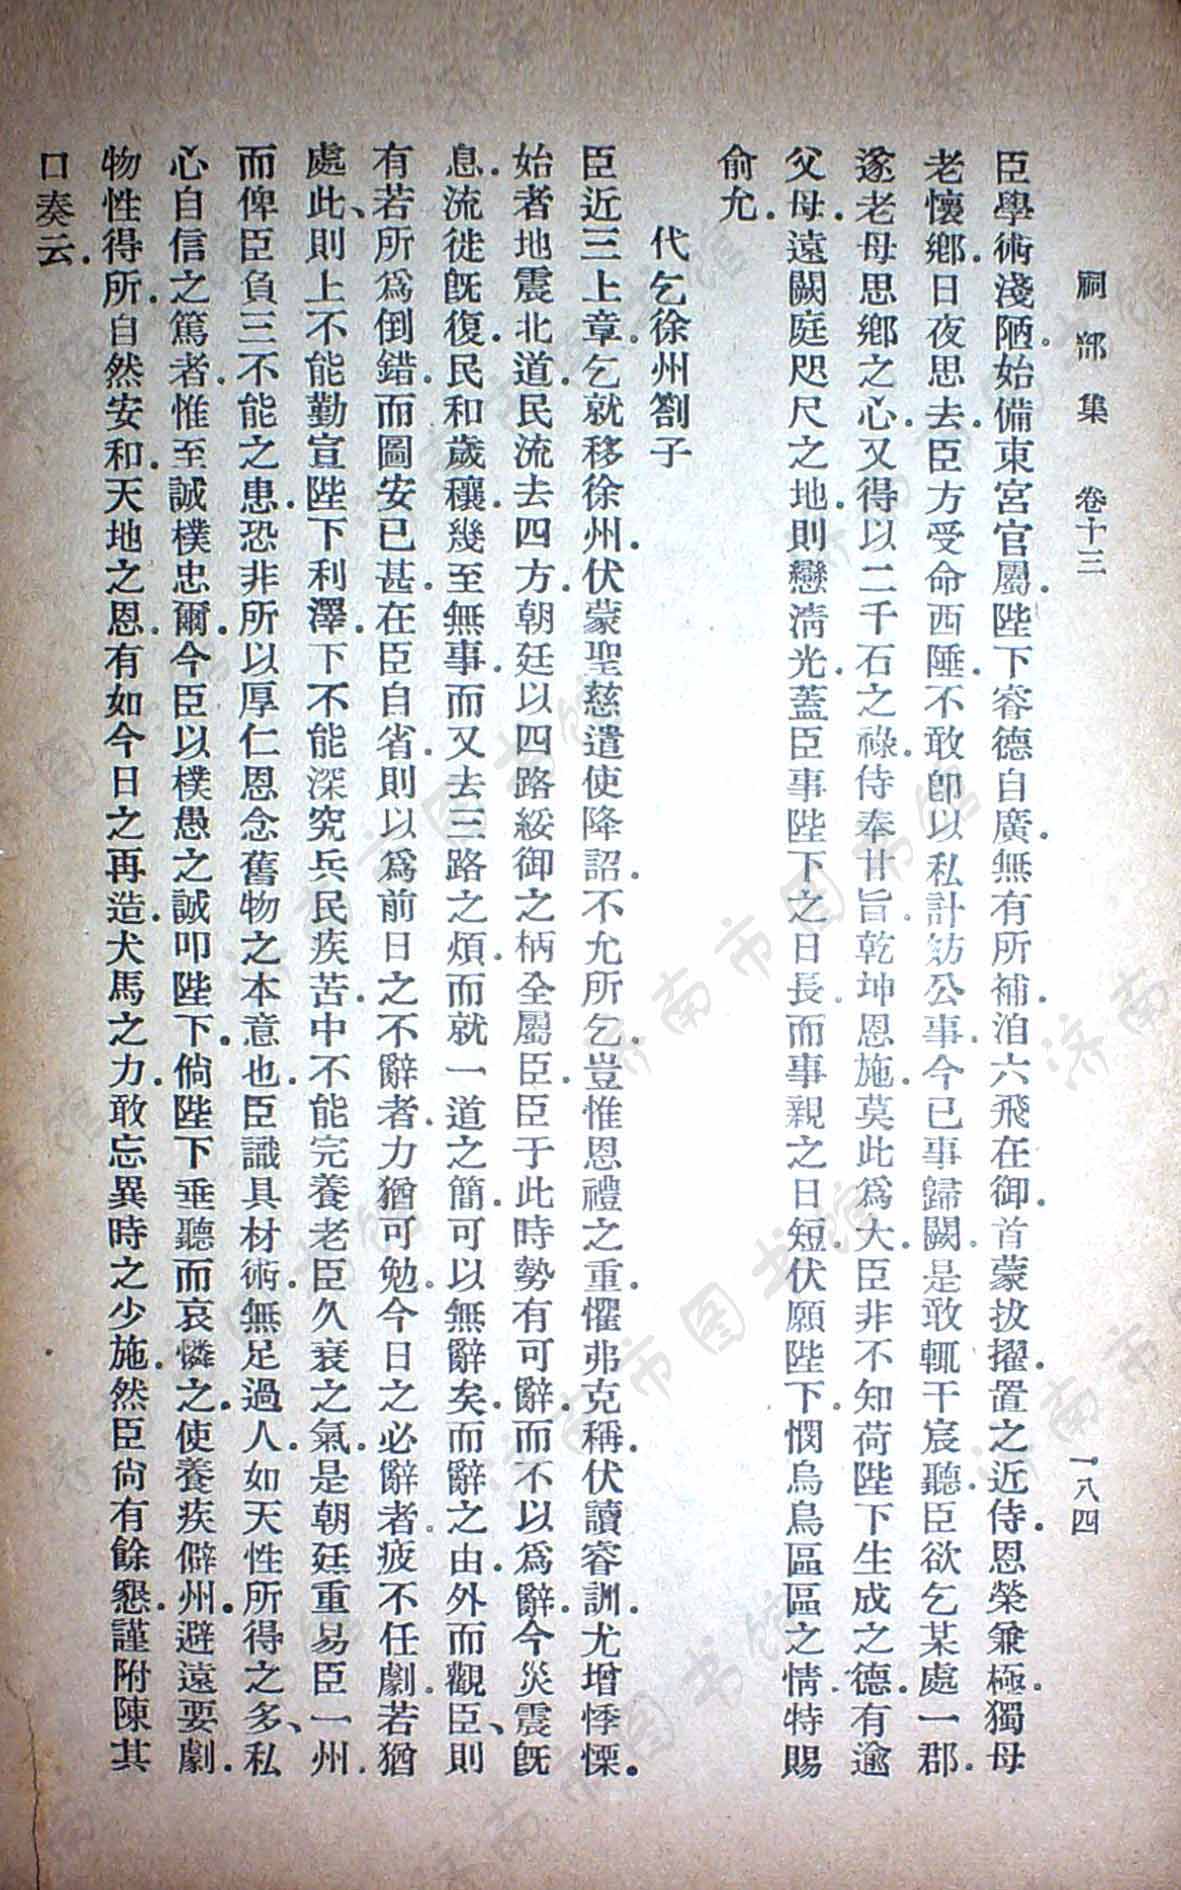 祠部集 卷十三 一八四
臣學術淺陋。始備東宮官屬。陛下睿德自廣。無有所補。洎六飛在御。首蒙拔擢。置之近侍。恩榮兼極。獨母
老懷鄉。日夜思去。臣方受命西陲。不敢卽以私計妨公事。今已事歸闕。是敢輒干宸聽。臣欲乞某處一郡。
遂老母思鄉之心。又得以二千石之祿。侍奉甘旨。乾坤恩施。莫此爲大。臣非不知荷陛下生成之德。有逾
父母。遠闕庭咫尺之地。則戀淸光。蓋臣事陛下之日長。而事親之日短。伏願陛下。憫烏鳥區區之情。特賜
俞允。
代乞徐州劄子
臣近三上章。乞就移徐州。伏蒙聖慈遣使降詔。不允所乞。豈惟恩禮之重。懼弗克稱。伏讀睿訓。尤增悸慄。
始者地震北道。民流去四方。朝廷以四路綏御之柄。全屬臣。臣于此時勢有可辭。而不以爲辭。今災震旣
息。流徙旣復。民和歲穰。幾至無事。而又去三路之煩。而就一道之簡。可以無辭矣。而辭之由。外而觀臣、則
有若所爲倒錯。而圖安已甚。在臣自省。則以爲前日之不辭者。力猶可勉。今日之必辭者。疲不任劇。若猶
處此、則上不能勤宣陛下利澤。下不能深究兵民疾苦。中不能完養老臣久衰之氣。是朝廷重易臣一州。
而俾臣負三不能之患。恐非所以厚仁恩念舊物之本意也。臣識具材術。無足過人。如天性所得之多、私
心自信之篤者。惟至誠樸忠爾。今臣以樸愚之誠叩陛下。倘陛下垂聽而哀憐之。使養疾僻州。避遠要劇。
物性得所。自然安和。天地之恩。有如今日之再造。犬馬之力。敢忘異時之少施。然臣尙有餘懇。謹附陳其
口奏云。
济南市图书馆